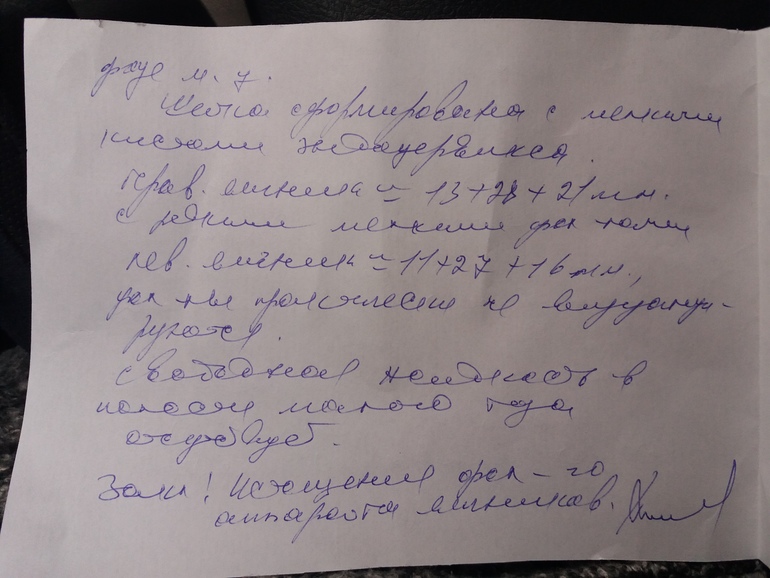 фазе м. ц.
Шейка сформирована с мелкими
кистами эндоцервикса.
Прав. яичник = 13+28+21 мм.
с редкими мелкими фол-лами
Лев. яичник = 11+27+16 мм.,
фол-лы практически не визуализи-
руются.
Свободная жидкость в
полости малого таза
отсутствует.
Закл! Истощения фол-го
аппарата яичников.